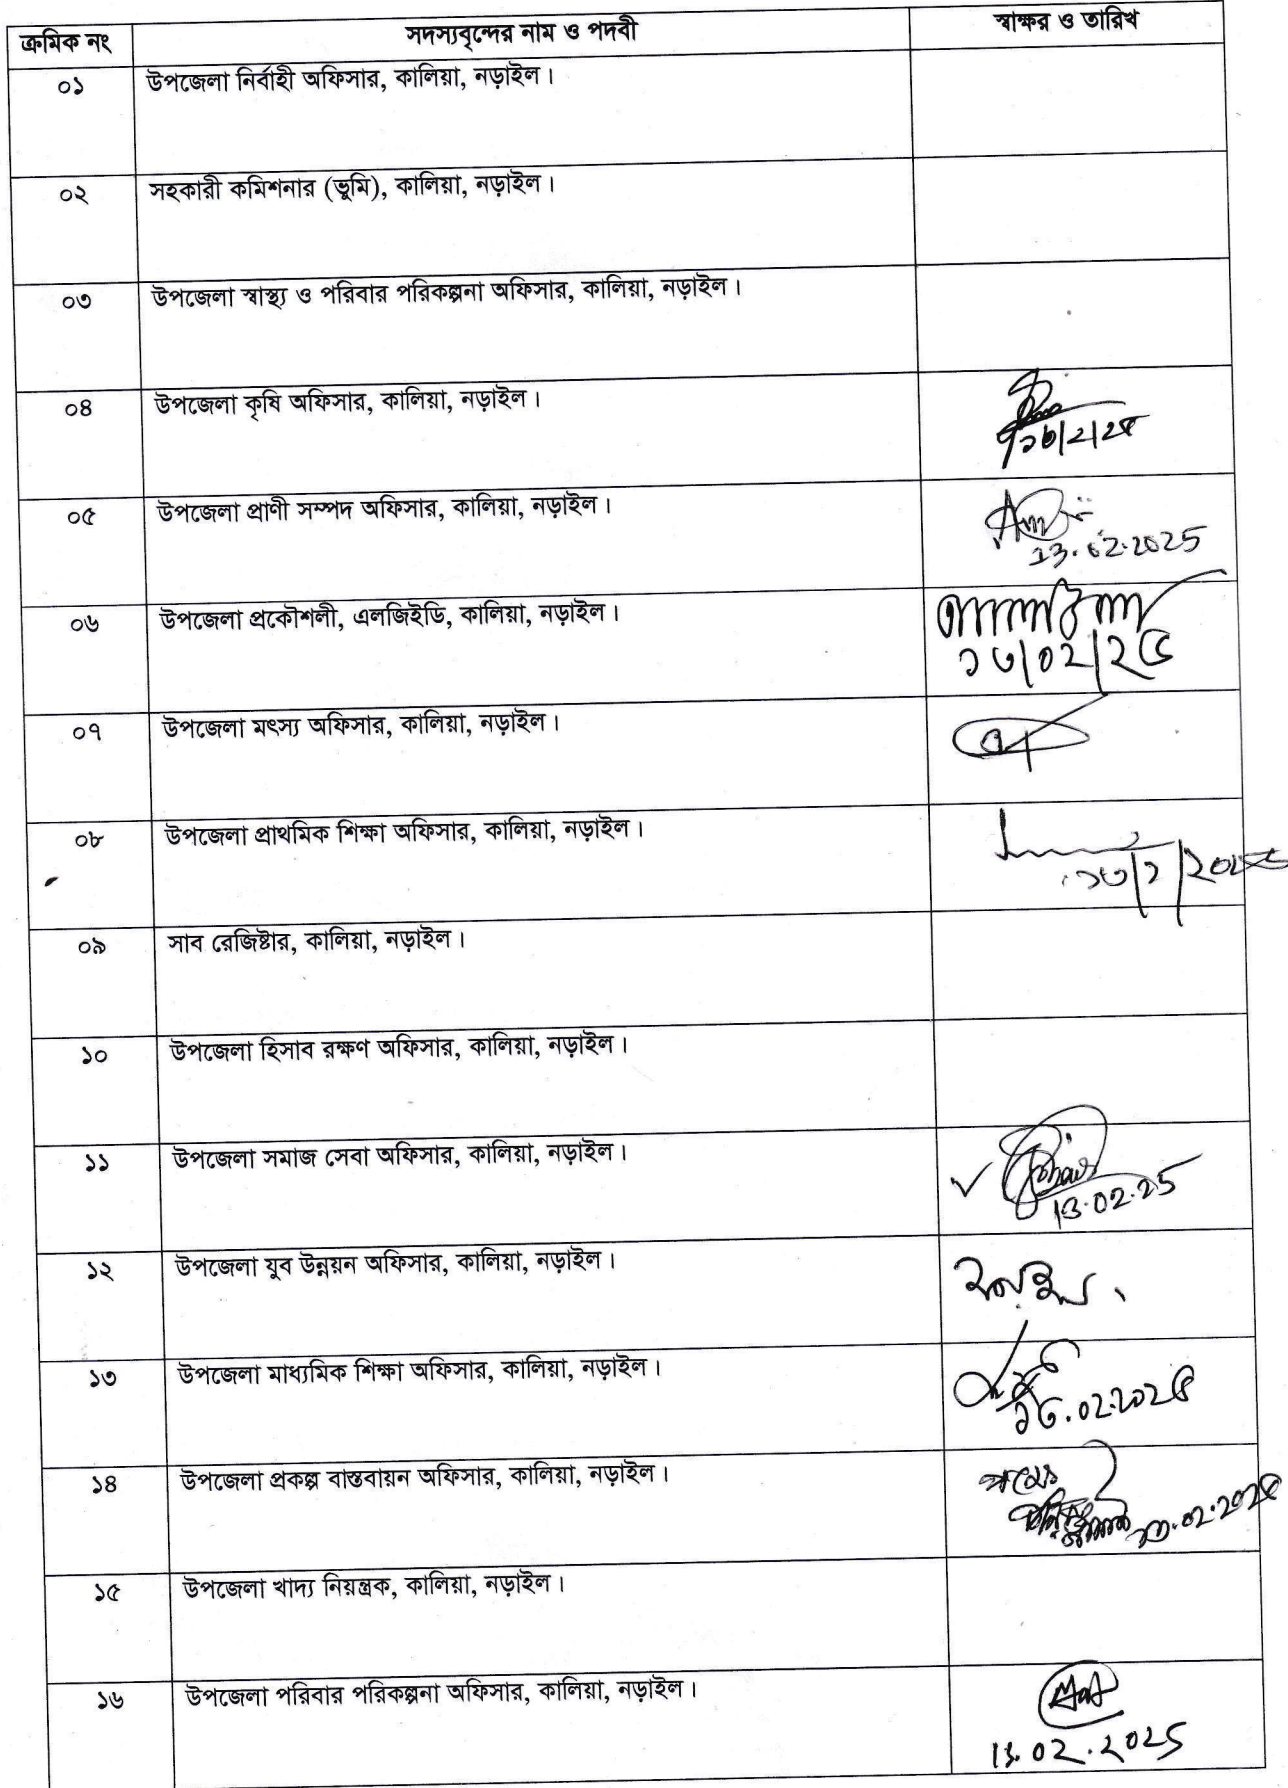 ক্রমিক নং সদস্যবৃন্দের নাম ও পদবী স্বাক্ষর ও তারিখ
০১ উপজেলা নির্বাহী অফিসার, কালিয়া, নড়াইল।
০২ সহকারী কমিশনার (ভূমি), কালিয়া, নড়াইল।
০৩ উপজেলা স্বাস্থ্য ও পরিবার পরিকল্পনা অফিসার, কালিয়া, নড়াইল।
০৪ উপজেলা কৃষি অফিসার, কালিয়া, নড়াইল।
০৫ উপজেলা প্রাণী সম্পদ অফিসার, কালিয়া, নড়াইল।
13.02.2025
০৬ উপজেলা প্রকৌশলী, এলজিইডি, কালিয়া, নড়াইল।
১৩/০২/২৫
০৭ উপজেলা মৎস্য অফিসার, কালিয়া, নড়াইল।
০৮ উপজেলা প্রাথমিক শিক্ষা অফিসার, কালিয়া, নড়াইল।
০৯ সাব রেজিষ্টার, কালিয়া, নড়াইল।
১০ উপজেলা হিসাব রক্ষণ অফিসার, কালিয়া, নড়াইল।
১১ উপজেলা সমাজ সেবা অফিসার, কালিয়া, নড়াইল।
13.02.25
১২ উপজেলা যুব উন্নয়ন অফিসার, কালিয়া, নড়াইল।
১৩ উপজেলা মাধ্যমিক শিক্ষা অফিসার, কালিয়া, নড়াইল।
১৩.০২.২০২৫
১৪ উপজেলা প্রকল্প বাস্তবায়ন অফিসার, কালিয়া, নড়াইল।
১৫ উপজেলা খাদ্য নিয়ন্ত্রক, কালিয়া, নড়াইল।
১৬ উপজেলা পরিবার পরিকল্পনা অফিসার, কালিয়া, নড়াইল।
13.02.2025